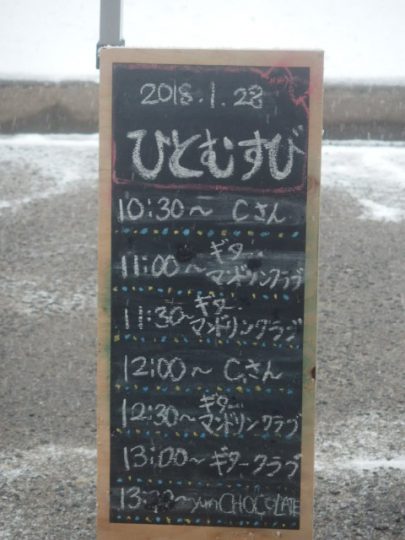 2018.1.28
ひとむすび
10:30～ Cさん
11:00～ ギター
マンドリンクラブ
11:30～ ギター
マンドリンクラブ
12:00～ Cさん
12:30～ ギター
マンドリンクラブ
13:00～ ギタークラブ
13:30～yumCHOCOLATE